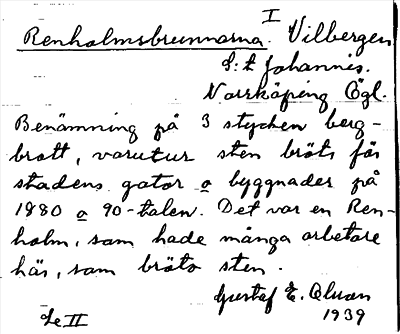 I
Renholmsbrunnarna. Vilbergen
S:t Johannis.
Norrköping Ögl.
Benämning på 3 stycken berg-
brott, varutur sten bröts för
stadens gator o byggnader på
1880 o 90-talen. Det var en Ren-
holm, som hade många arbetare
här, som bröto sten.
Gustaf E.
1939
II